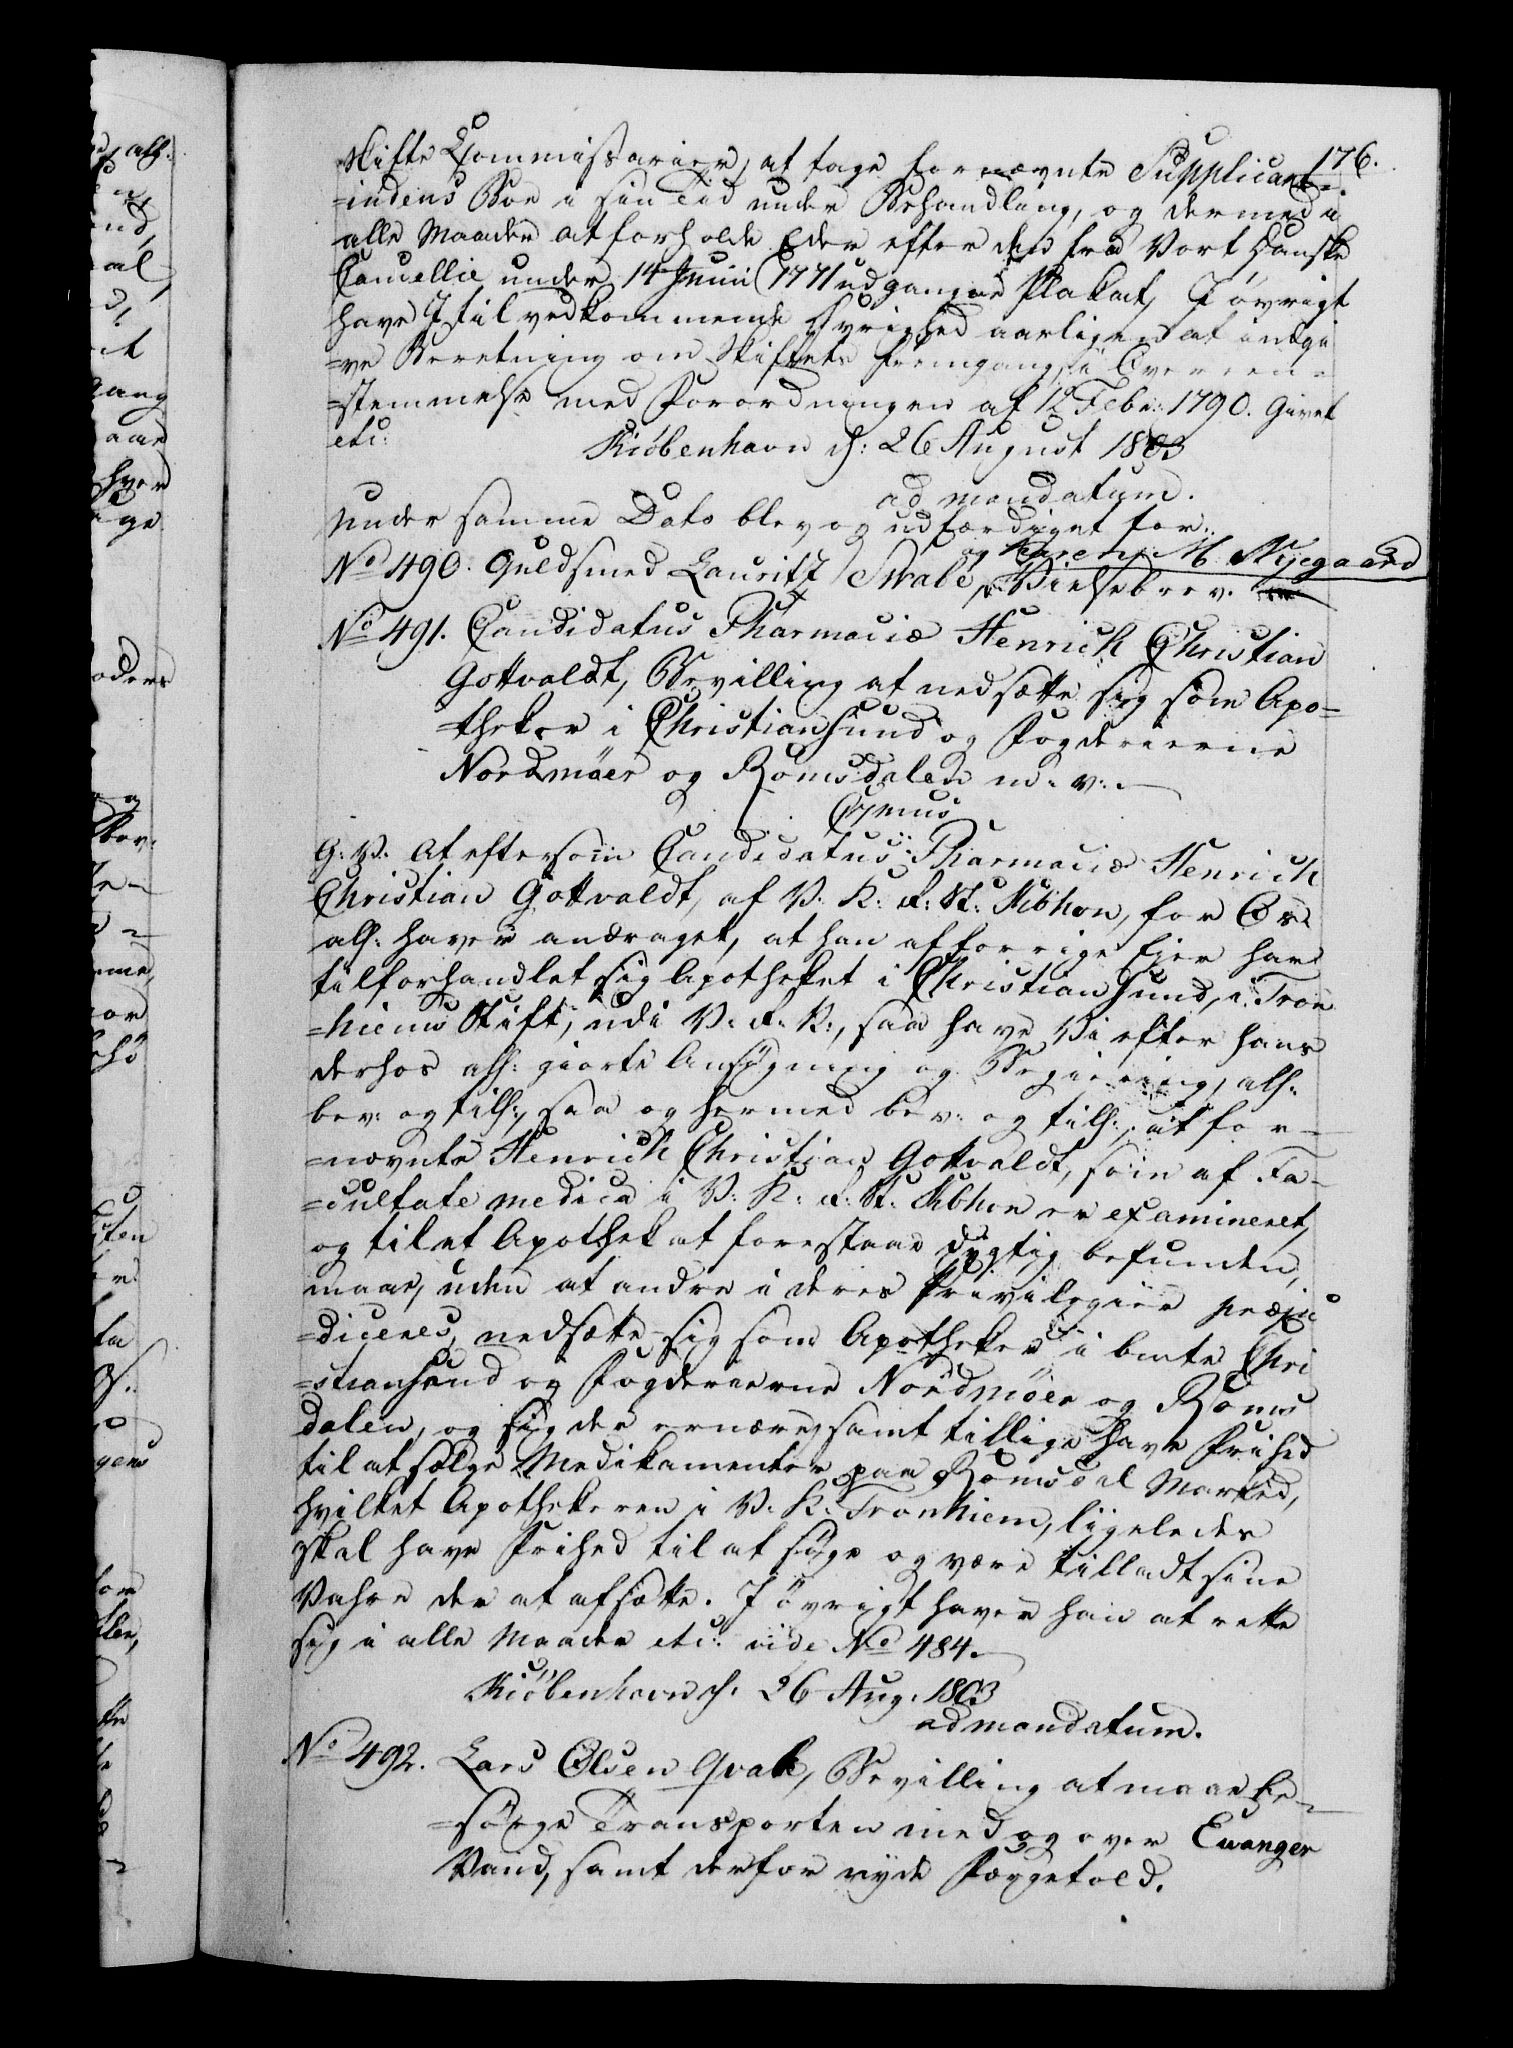 176.
Skifte Commissarier, at tage fornævnte Supplicant-
=indens Boe i sin Tid under Behandling, og dermed i
alle Maader at forholde Eder efter den fra Vort Danske
Cancellie under 14 Junii 1771 udgangne Plakat, I øvrigt
have I til vedkommende Øvrighed aarligen at indgi
=ve Beretning om Skiftets Fremgang, i Overeen-
=stemmelse med Forordningen af 12 Febr: 1790. Givet
etc: Kiöbenhavn d: 26 August 1803
ad mandatum.
Under samme Dato blev og udfærdiget for:
No 490. Guldsmed Lauritz Strabe og Karen M. Myegaard
Vielsebrev.
No 491. Candidatus Pharmaciæ Henrich Christian
Gottvaldt, Bevilling at nedsætte sig som Apo=
=theker i Christiansund og Fogderierne
Nordmöer og Romsdalen m. v.
C7mus
G: V. At eftersom Candidatus Pharmaciæ Henrich
Christian Gottvaldt, af V. K: R: St: Kbhvn, for Os
alh: haver andraget, at han af forrige Eier har
tilforhandlet sig Apotheket i Christiansund, i Tron
=hiems Stift, udi V. R. N:, saa have Vi efter hans
derhos alh: giorte Ansøgning og Begiering, alh:
bev: og till:, saa og hermed bev: og till:, at for-
=nævnte Henrich Christian Gottvaldt, som af Fa-
=cultate medica i V: K: R: St: Kbhvn er examineret,
og til et Apothek at forestaae dygtig befunden,
maae, uden at andre i deres Privilegier præju
=diceres, nedsætte sig som Apotheker i bmte Chri
=stiansund og Fogderierne Nordmöer og Roms
dalen, og sig der ernære, samt tillige have Frihed
til at sælge Medikamenter paa Romsdal Marked,
hvilket Apothekeren i V. K: Tronhiem, ligeledes
skal have Frihed til at søge og være tilladt sine
Vahre der at afsætte. I øvrigt haver han at rette
sig i alle Maader etc: vide No 484.
Kiöbenhavn d. 26 Aug. 1803
ad mandatum.
No 492. Lars Olsen Qvale, Bevilling at maae be-
=sørge Transporten med og over Evanger
Vand, samt derfor nyde Færgetold.